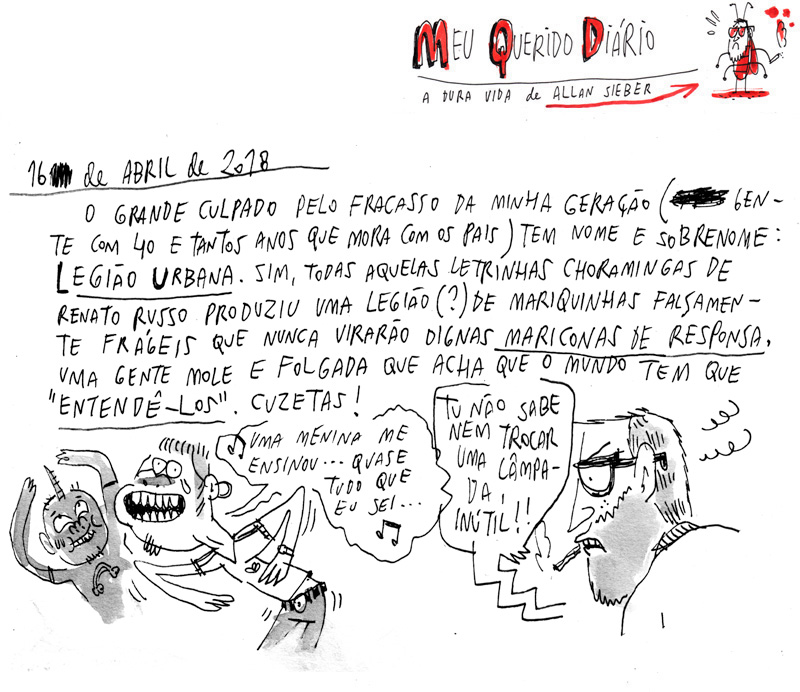 MEU QUERIDO DIÁRIO
A DURA VIDA de ALLAN SIEBER
16 de ABRIL de 2018
O GRANDE CULPADO PELO FRACASSO DA MINHA GERAÇÃO ( GEN-
TE COM 40 E TANTOS ANOS QUE MORA COM OS PAIS) TEM NOME E SOBRENOME:
LEGIÃO URBANA. SIM, TODAS AQUELAS LETRINHAS CHORAMINGAS DE
RENATO RUSSO PRODUZIU UMA LEGIÃO (?) DE MARIQUINHAS FALSAMEN-
TE FRÁGEIS QUE NUNCA VIRARÃO DIGNAS MARICONAS DE RESPONSA.
UMA GENTE MOLE E FOLGADA QUE ACHA QUE O MUNDO TEM QUE
"ENTENDÊ-LOS". CUZETAS!
UMA MENINA ME
ENSINOU... QUASE
TUDO QUE
EU SEI...
TU NÃO SABE
NEM TROCAR
UMA LÂMPA-
DA,
INÚTIL!!